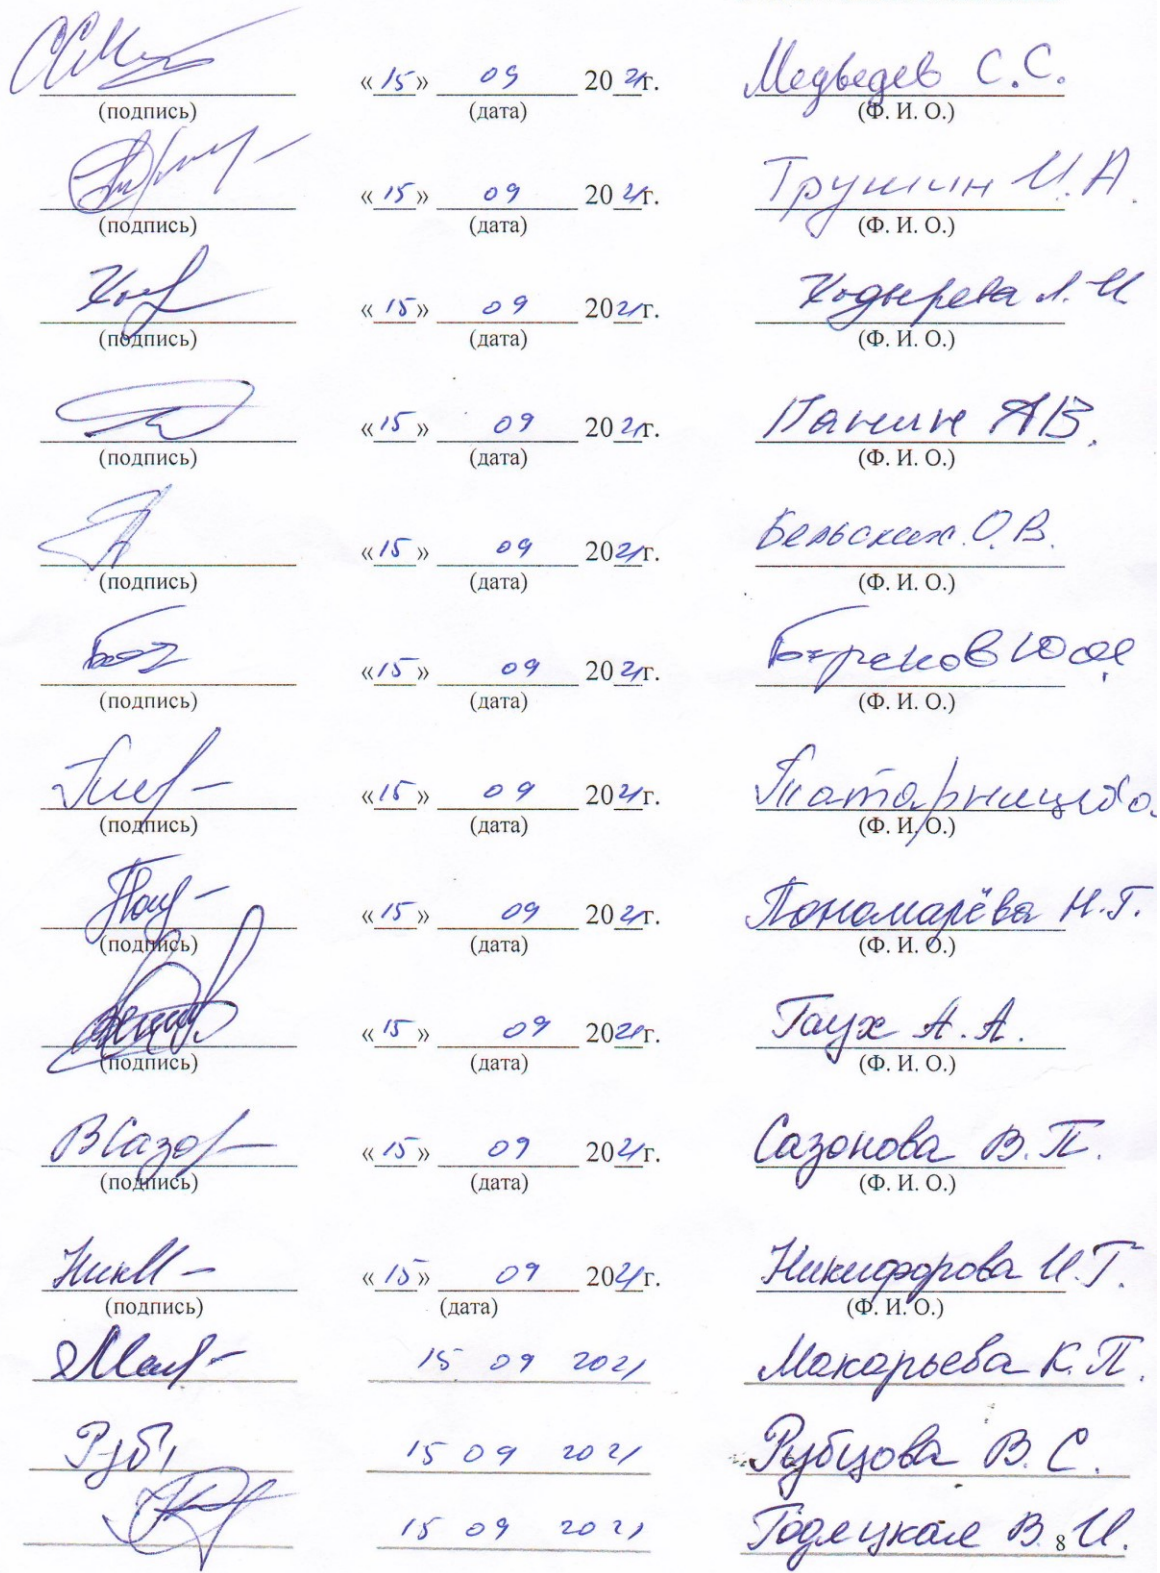 «15» 09 2021г. Медведев С.С.
(подпись) (дата) (Ф. И. О.)
«15» 09 2021г. Трушин И.А.
(подпись) (дата) (Ф. И. О.)
«15» 09 2021г. Кодырева Л.И
(подпись) (дата) (Ф. И. О.)
«15» 09 2021г. Панин АВ.
(подпись) (дата) (Ф. И. О.)
«15» 09 2021г. Бельских О.В.
(подпись) (дата) (Ф. И. О.)
«15» 09 2021г.
(подпись) (дата) (Ф. И. О.)
«15» 09 2021г.
(подпись) (дата) (Ф. И. О.)
«15» 09 2021г. Пономарёва Н.Г.
(подпись) (дата) (Ф. И. О.)
«15» 09 2021г. Гаух А.А.
(подпись) (дата) (Ф. И. О.)
ВСазо «15» 09 2021г. Сазонова В.П.
(подпись) (дата) (Ф. И. О.)
«15» 09 2021г. Никифорова И.Г.
(подпись) (дата) (Ф. И. О.)
15 09 2021 Макарьева К.П.
15 09 2021 Рубцова В.С.
15 09 2021 В.И.
8